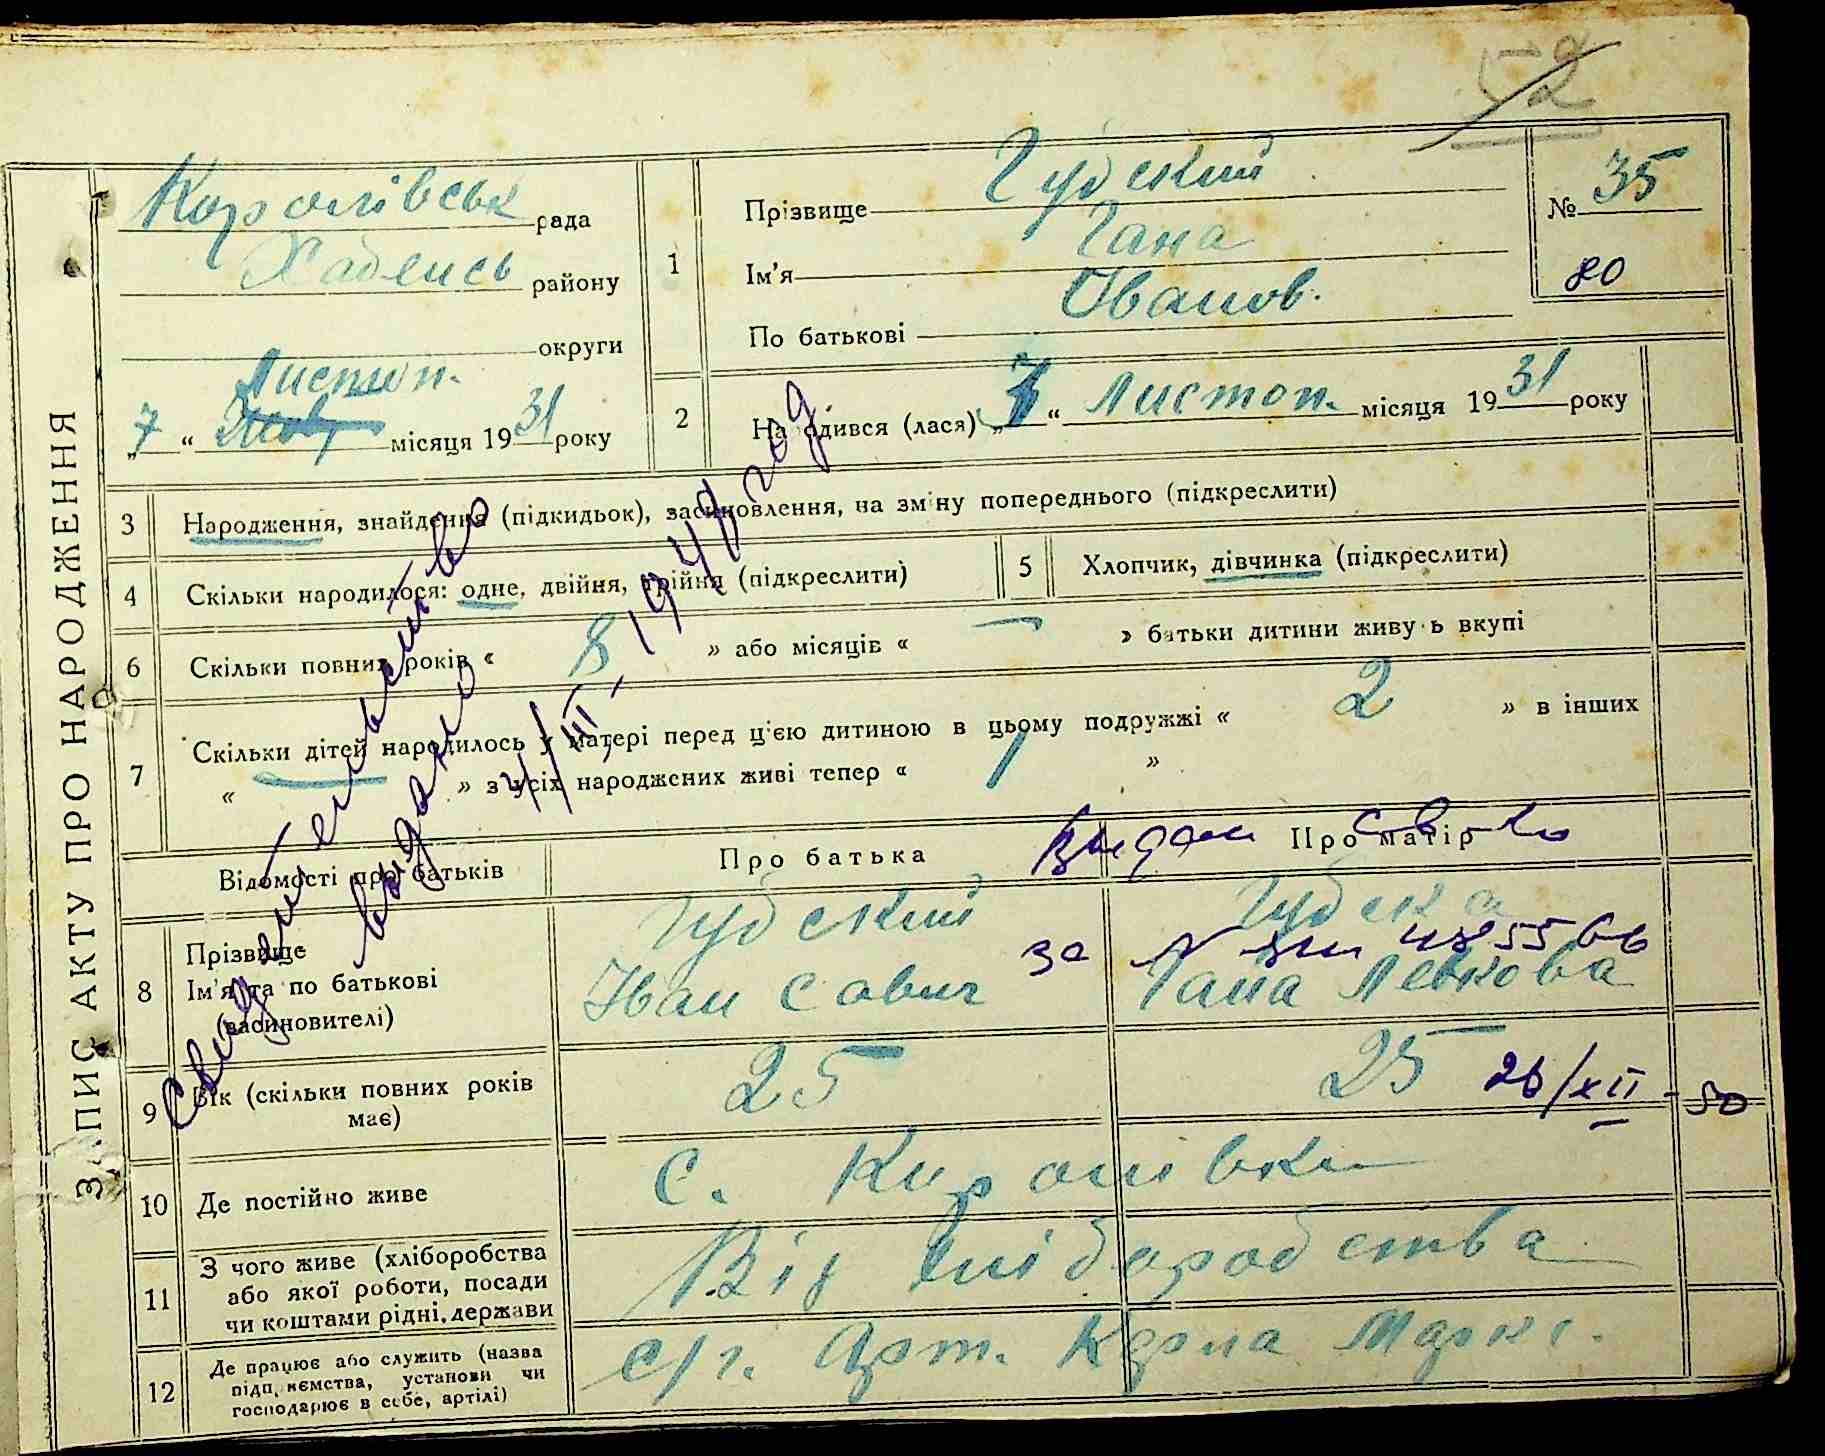 52
ЗАПИС АКТУ ПРО НАРОДЖЕННЯ
Королівськ рада
Хабенсь району
округи
Листоп.
„7 “ місяця 1931 року
1
Прізвище Гудский
Ім'я Гана
По батькові Іванов.
№ 35
80
2 Народився (лася) „7 “ Листоп. місяця 1931 року
3 Народження, знайдення (підкидьок), засиновлення, на зміну попереднього (підкреслити)
4 Скільки народилося: одне, двійня, трійня (підкреслити)
5 Хлопчик, дівчинка (підкреслити)
6 Скільки повних років « 8 » або місяців « — » батьки дитини живуть вкупі
7 Скільки дітей народилось у матері перед ц'єю дитиною в цьому подружжі « 2 » в інших
« — » з усіх народжених живі тепер « 1 »
Свидетельство
выдано
4/III, 1947 год
Відомості про батьків
Про батька
Про матір
Выдан св-во
за № 55
26/XII - 50
8 Прізвище
Ім'я та по батькові
(васиновителі)
Гудский
Іван Савич
Гудска
Гана Левкова
9 Вік (скільки повних років має)
25
25
10 Де постійно живе
с. Королівка
11 З чого живе (хліборобства
або якої роботи, посади
чи коштами рідні, держави
Від хліборобства
12 Де працює або служить (назва
підприємства, установи чи
господарює в себе, артілі)
с/г. Арт. Карла Маркс.